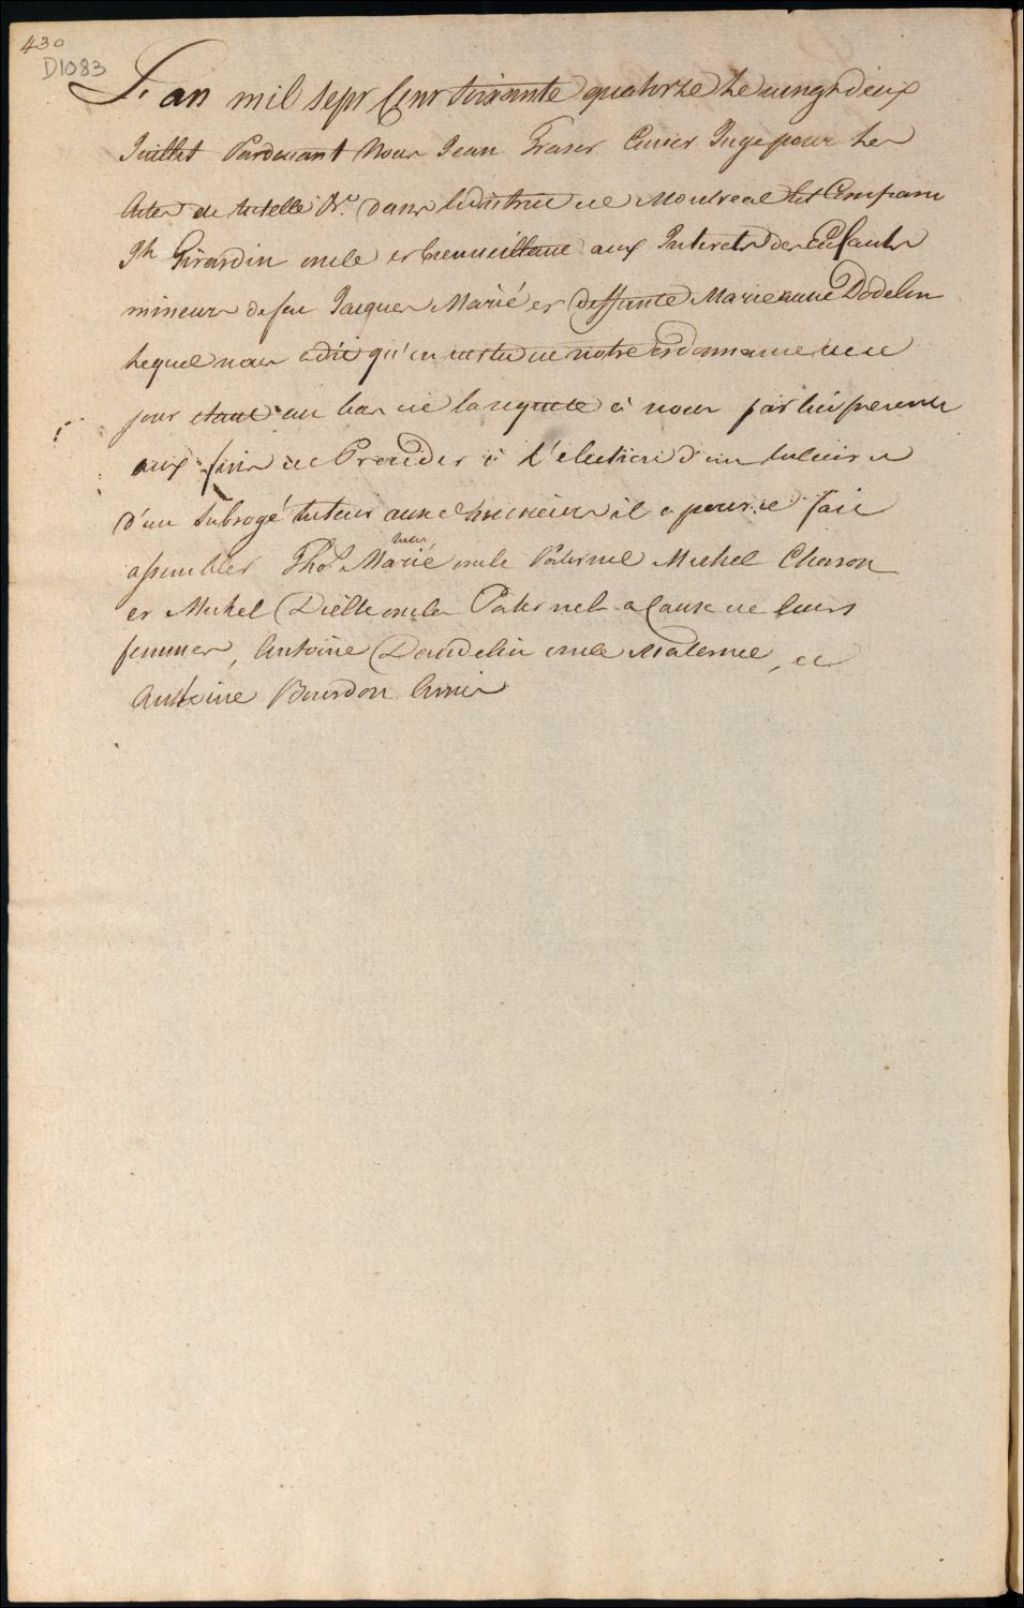 430
D1083
L'an mil sept Cent soixante quatorze Le vingt deux
Juillet Pardevant Nous Jean Fraser Ecuier Juge pour les
Actes de tutelle &c. dans le district de Montreal Est Comparu
Jh. Girardin oncle et bienveillant aux Interets des Enfants
mineurs de feu Jacques Marié et deffunte Marie anne Dodelin
Lequel nous a dit qu'en vertu de notre ordonnance de ce
jour etant au bas de la requete à nous par lui presentée
aux fins de Proceder à L'election d'un tuteur et
d'un Subrogé tuteur aux d. mineurs il a pour ce fait
assembler Ths. Marié oncle Paternel Michel Charon
et Michel Dielle oncles Paternels a Cause de leurs
femmes, Antoine Daudelin oncle Maternel, et
Antoine Bourdon Amis